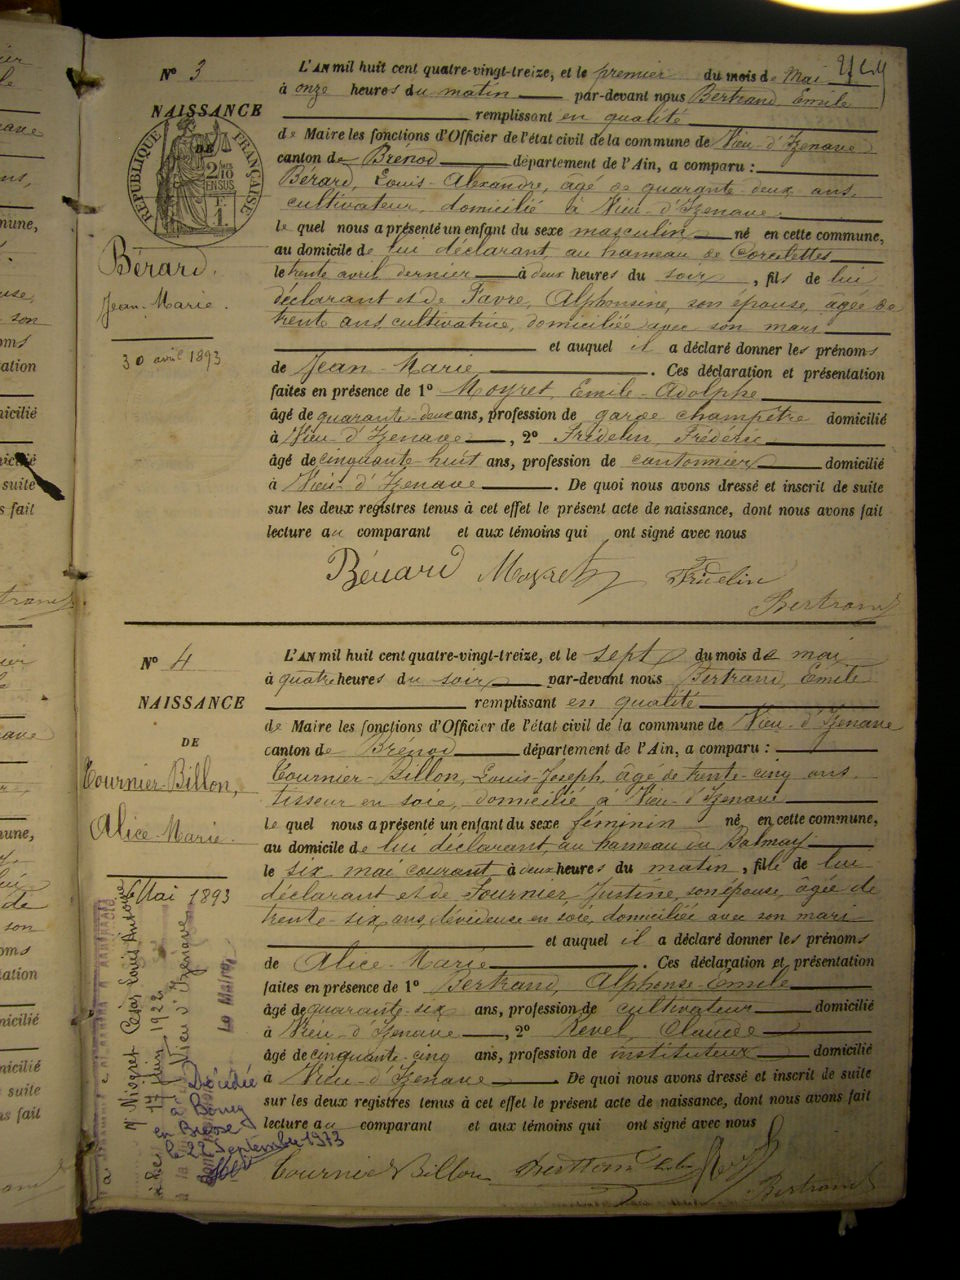 N° 3
NAISSANCE
DE
RÉPUBLIQUE FRANÇAISE
2/10 EN SUS
Bérard.
Jean-Marie.
30 avril 1893
L'AN mil huit cent quatre-vingt-treize, et le premier du mois de Mai
à onze heures du matin par-devant nous Bertrand Emile
remplissant en qualité
de Maire les fonctions d'Officier de l'état civil de la commune de Vieu-d'Izenave
canton de Brénod département de l'Ain, a comparu :
Bérard, Louis-Alexandre, âgé de quarante-deux ans.
cultivateur, domicilié à Vieu-d'Izenave.
le quel nous a présenté un enfant du sexe masculin né en cette commune,
au domicile de lui déclarant, au hameau de Corcelettes
le trente avril dernier à deux heures du soir, fils de lui
déclarant et de Favre, Alphonsine, son épouse, âgée de
trente ans cultivatrice, domiciliée avec son mari
et auquel il a déclaré donner les prénoms
de Jean-Marie. Ces déclaration et présentation
faites en présence de 1° Moyret, Emile-Adolphe
âgé de quarante-deux ans, profession de garde champêtre domicilié
à Vieu-d'Izenave, 2° Fridelin, Frédéric
âgé de cinquante-huit ans, profession de cantonnier domicilié
à Vieu-d'Izenave. De quoi nous avons dressé et inscrit de suite
sur les deux registres tenus à cet effet le présent acte de naissance, dont nous avons fait
lecture au comparant et aux témoins qui ont signé avec nous
Bérard Moyret Fridelin
Bertrand
N° 4
NAISSANCE
DE
Tournier-Billon,
Alice-Marie.
6 Mai 1893
L'AN mil huit cent quatre-vingt-treize, et le sept du mois de mai
à quatre heures du soir par-devant nous Bertrand, Emile
remplissant en qualité
de Maire les fonctions d'Officier de l'état civil de la commune de Vieu-d'Izenave
canton de Brénod département de l'Ain, a comparu :
Tournier-Billon, Louis-Joseph, âgé de trente-cinq ans.
tisseur en soie, domicilié à Vieu-d'Izenave
Le quel nous a présenté un enfant du sexe féminin né en cette commune,
au domicile de lui déclarant, au hameau du Balmay
le six mai courant à deux heures du matin, fille de lui
déclarant et de Tournier, Justine, son épouse, âgée de
trente-six ans, dévideuse en soie, domiciliée avec son mari
et auquel il a déclaré donner les prénoms
de Alice-Marie. Ces déclaration et présentation
faites en présence de 1° Bertrand, Alphonse-Emile
âgé de quarante-six ans, profession de cultivateur domicilié
à Vieu-d'Izenave, 2° Revel, Claude
âgé de cinquante-cinq ans, profession de instituteur domicilié
à Vieu-d'Izenave. De quoi nous avons dressé et inscrit de suite
sur les deux registres tenus à cet effet le présent acte de naissance, dont nous avons fait
lecture au comparant et aux témoins qui ont signé avec nous
Tournier Billon Bertrand
Bertrand
César Louis Antoine
17 juin 1922
Vieu d'Izenave
Le Maire,
Décédée
à Bourg
en Bresse
le 22 Septembre 1973